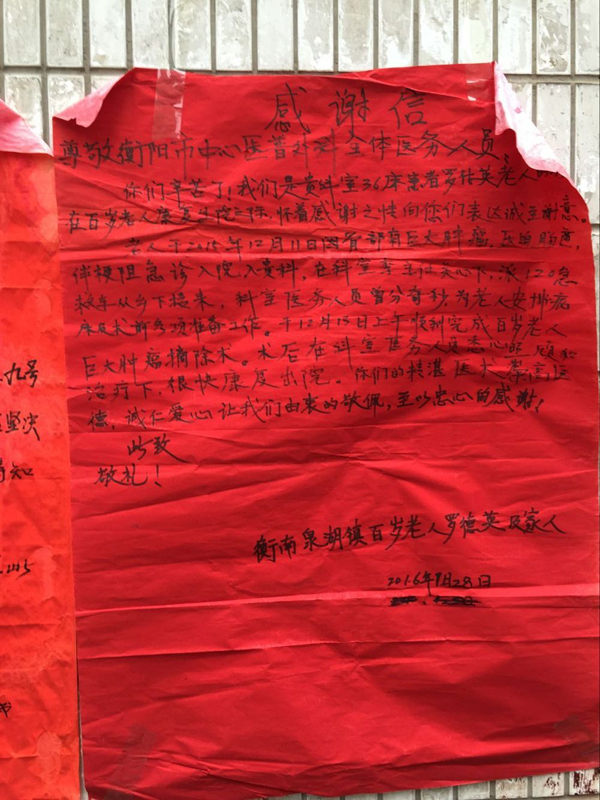 感谢信
尊敬衡阳市中心医普外科全体医务人员、
你们辛苦了!我们是贵科室36床患者罗德英老人的
在百岁老人康复出院之际,怀着感谢之情向你们表达诚至谢意。
老人于2015年12月11日因胃部有巨大肿瘤,
伴梗阻急诊入院,入贵科,在科室主任关心下,派120急
救车从乡下接来,科室医务人员曾分奇秒为老人安排病
床及术前各项准备工作。于12月15日上午顺利完成百岁老人
巨大肿瘤摘除术。术后在科室医务人员悉心照顾和
治疗下,很快康复出院。你们的精湛医术、崇高医
德,诚仁爱心让我们由衷的敬佩,至以忠心的感谢!
此致
敬礼!
衡南泉湖镇百岁老人罗德英及家人
2016年1月28日
九号
坚决
知